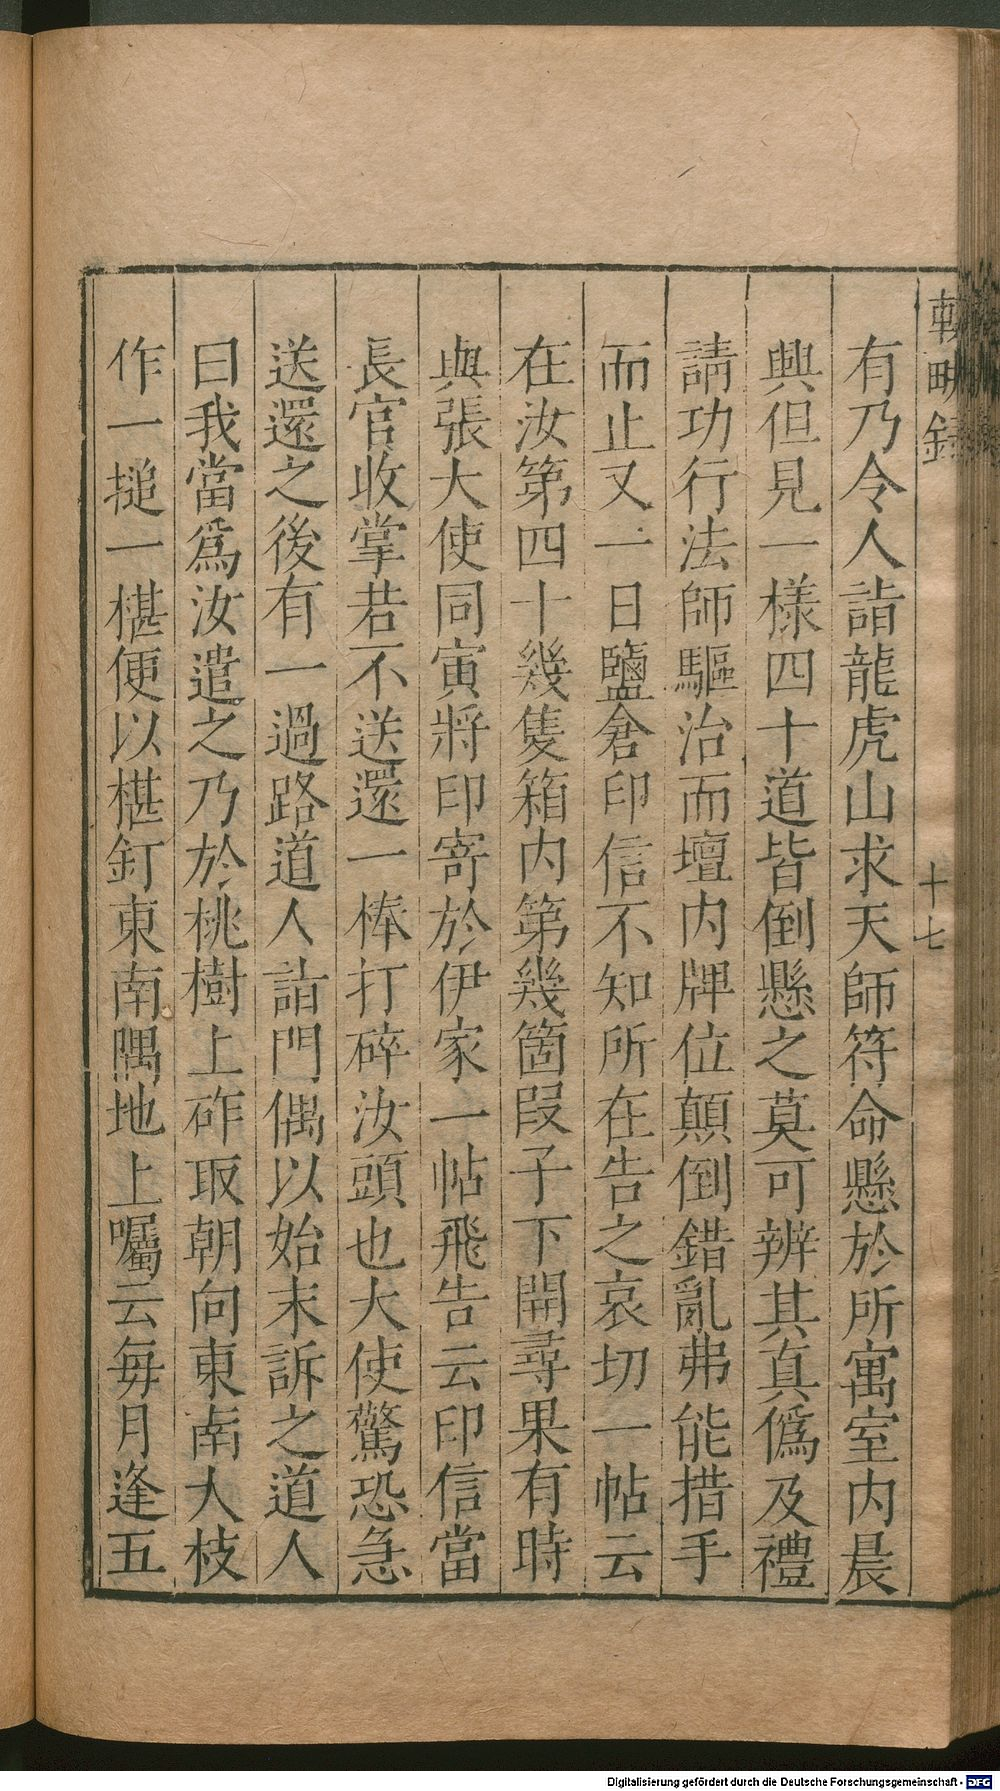 輟畊錄
十七
有乃令人詣龍虎山求天師符命懸於所寓室內晨
興但見一樣四十道皆倒懸之莫可辨其真僞及禮
請功行法師驅治而壇內牌位顛倒錯亂弗能措手
而止又一日鹽倉印信不知所在告之哀切一帖云
在汝第四十幾隻箱內第幾箇叚子下開尋果有時
與張大使同寅將印寄於伊家一帖飛告云印信當
長官收掌若不送還一棒打碎汝頭也大使驚恐急
送還之後有一過路道人詣門偶以始末訴之道人
曰我當爲汝遣之乃於桃樹上砟取朝向東南大枝
作一搥一椹便以椹釘東南隅地上囑云每月逢五
Digitalisierung gefördert durch die Deutsche Forschungsgemeinschaft - DFG